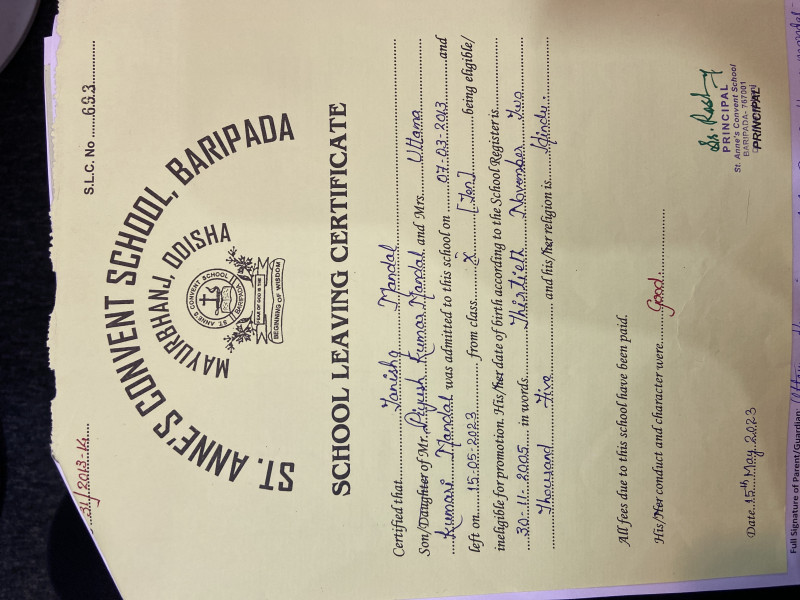 S.L.C. No ......693......
....31/2013-14
ST. ANNE'S CONVENT SCHOOL, BARIPADA
MAYURBHANJ, ODISHA
ST. ANNE'S CONVENT SCHOOL
BARIPADA
FEAR OF GOD IS THE
BEGINNING OF WISDOM
SCHOOL LEAVING CERTIFICATE
Certified that Tanishq Mandal
Son/Daughter of Mr. Piyush Kumar Mandal and Mrs. Uttama
Kumari Mandal was admitted to this school on 07-03-2013 and
left on 15-05-2023 from class X [Ten] being eligible/
ineligible for promotion. His/her date of birth according to the School Register is
30-11-2005 in words Thirtieth November Two
Thousand Five and his/her religion is Hindu.
All fees due to this school have been paid.
His/Her conduct and character were Good.
Date 15th May 2023
PRINCIPAL
St. Anne's Convent School
BARIPADA- 757001
PRINCIPAL
Full Signature of Parent/Guardian: